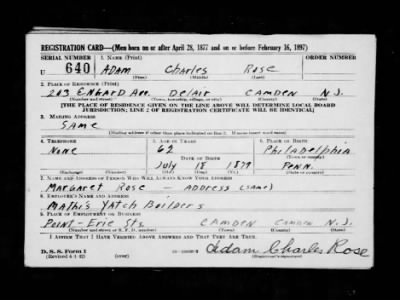 REGISTRATION CARD—(Men born on or after April 28, 1877 and on or before February 16, 1897)
SERIAL NUMBER 1. NAME (Print) ORDER NUMBER
U 640 ADAM Charles Rose
(First) (Middle) (Last)
2. PLACE OF RESIDENCE (Print)
203 Delair CAMDEN N.J.
(Number and street) (Town, township, village, or city) (County) (State)
[THE PLACE OF RESIDENCE GIVEN ON THE LINE ABOVE WILL DETERMINE LOCAL BOARD
JURISDICTION; LINE 2 OF REGISTRATION CERTIFICATE WILL BE IDENTICAL]
3. MAILING ADDRESS
SAME
[Mailing address if other than place indicated on line 2. If same insert word same]
4. TELEPHONE 5. AGE IN YEARS 6. PLACE OF BIRTH
NONE 62 PhilAdelphia
DATE OF BIRTH (Town or county)
July 18 1879 PENN.
(Exchange) (Number) (Mo.) (Day) (Yr.) (State or country)
7. NAME AND ADDRESS OF PERSON WHO WILL ALWAYS KNOW YOUR ADDRESS
MARGARET ROSE — ADDRESS (SAME)
8. EMPLOYER'S NAME AND ADDRESS
MAthis YAtch Builders
9. PLACE OF EMPLOYMENT OR BUSINESS
POINT - Erie Sts. CAMDEN CAMDEN N.J.
(Number and street or R. F. D. number) (Town) (County) (State)
I AFFIRM THAT I HAVE VERIFIED ABOVE ANSWERS AND THAT THEY ARE TRUE.
D. S. S. Form 1 Adam Charles Rose
(Revised 4-1-42) (Registrant's signature)